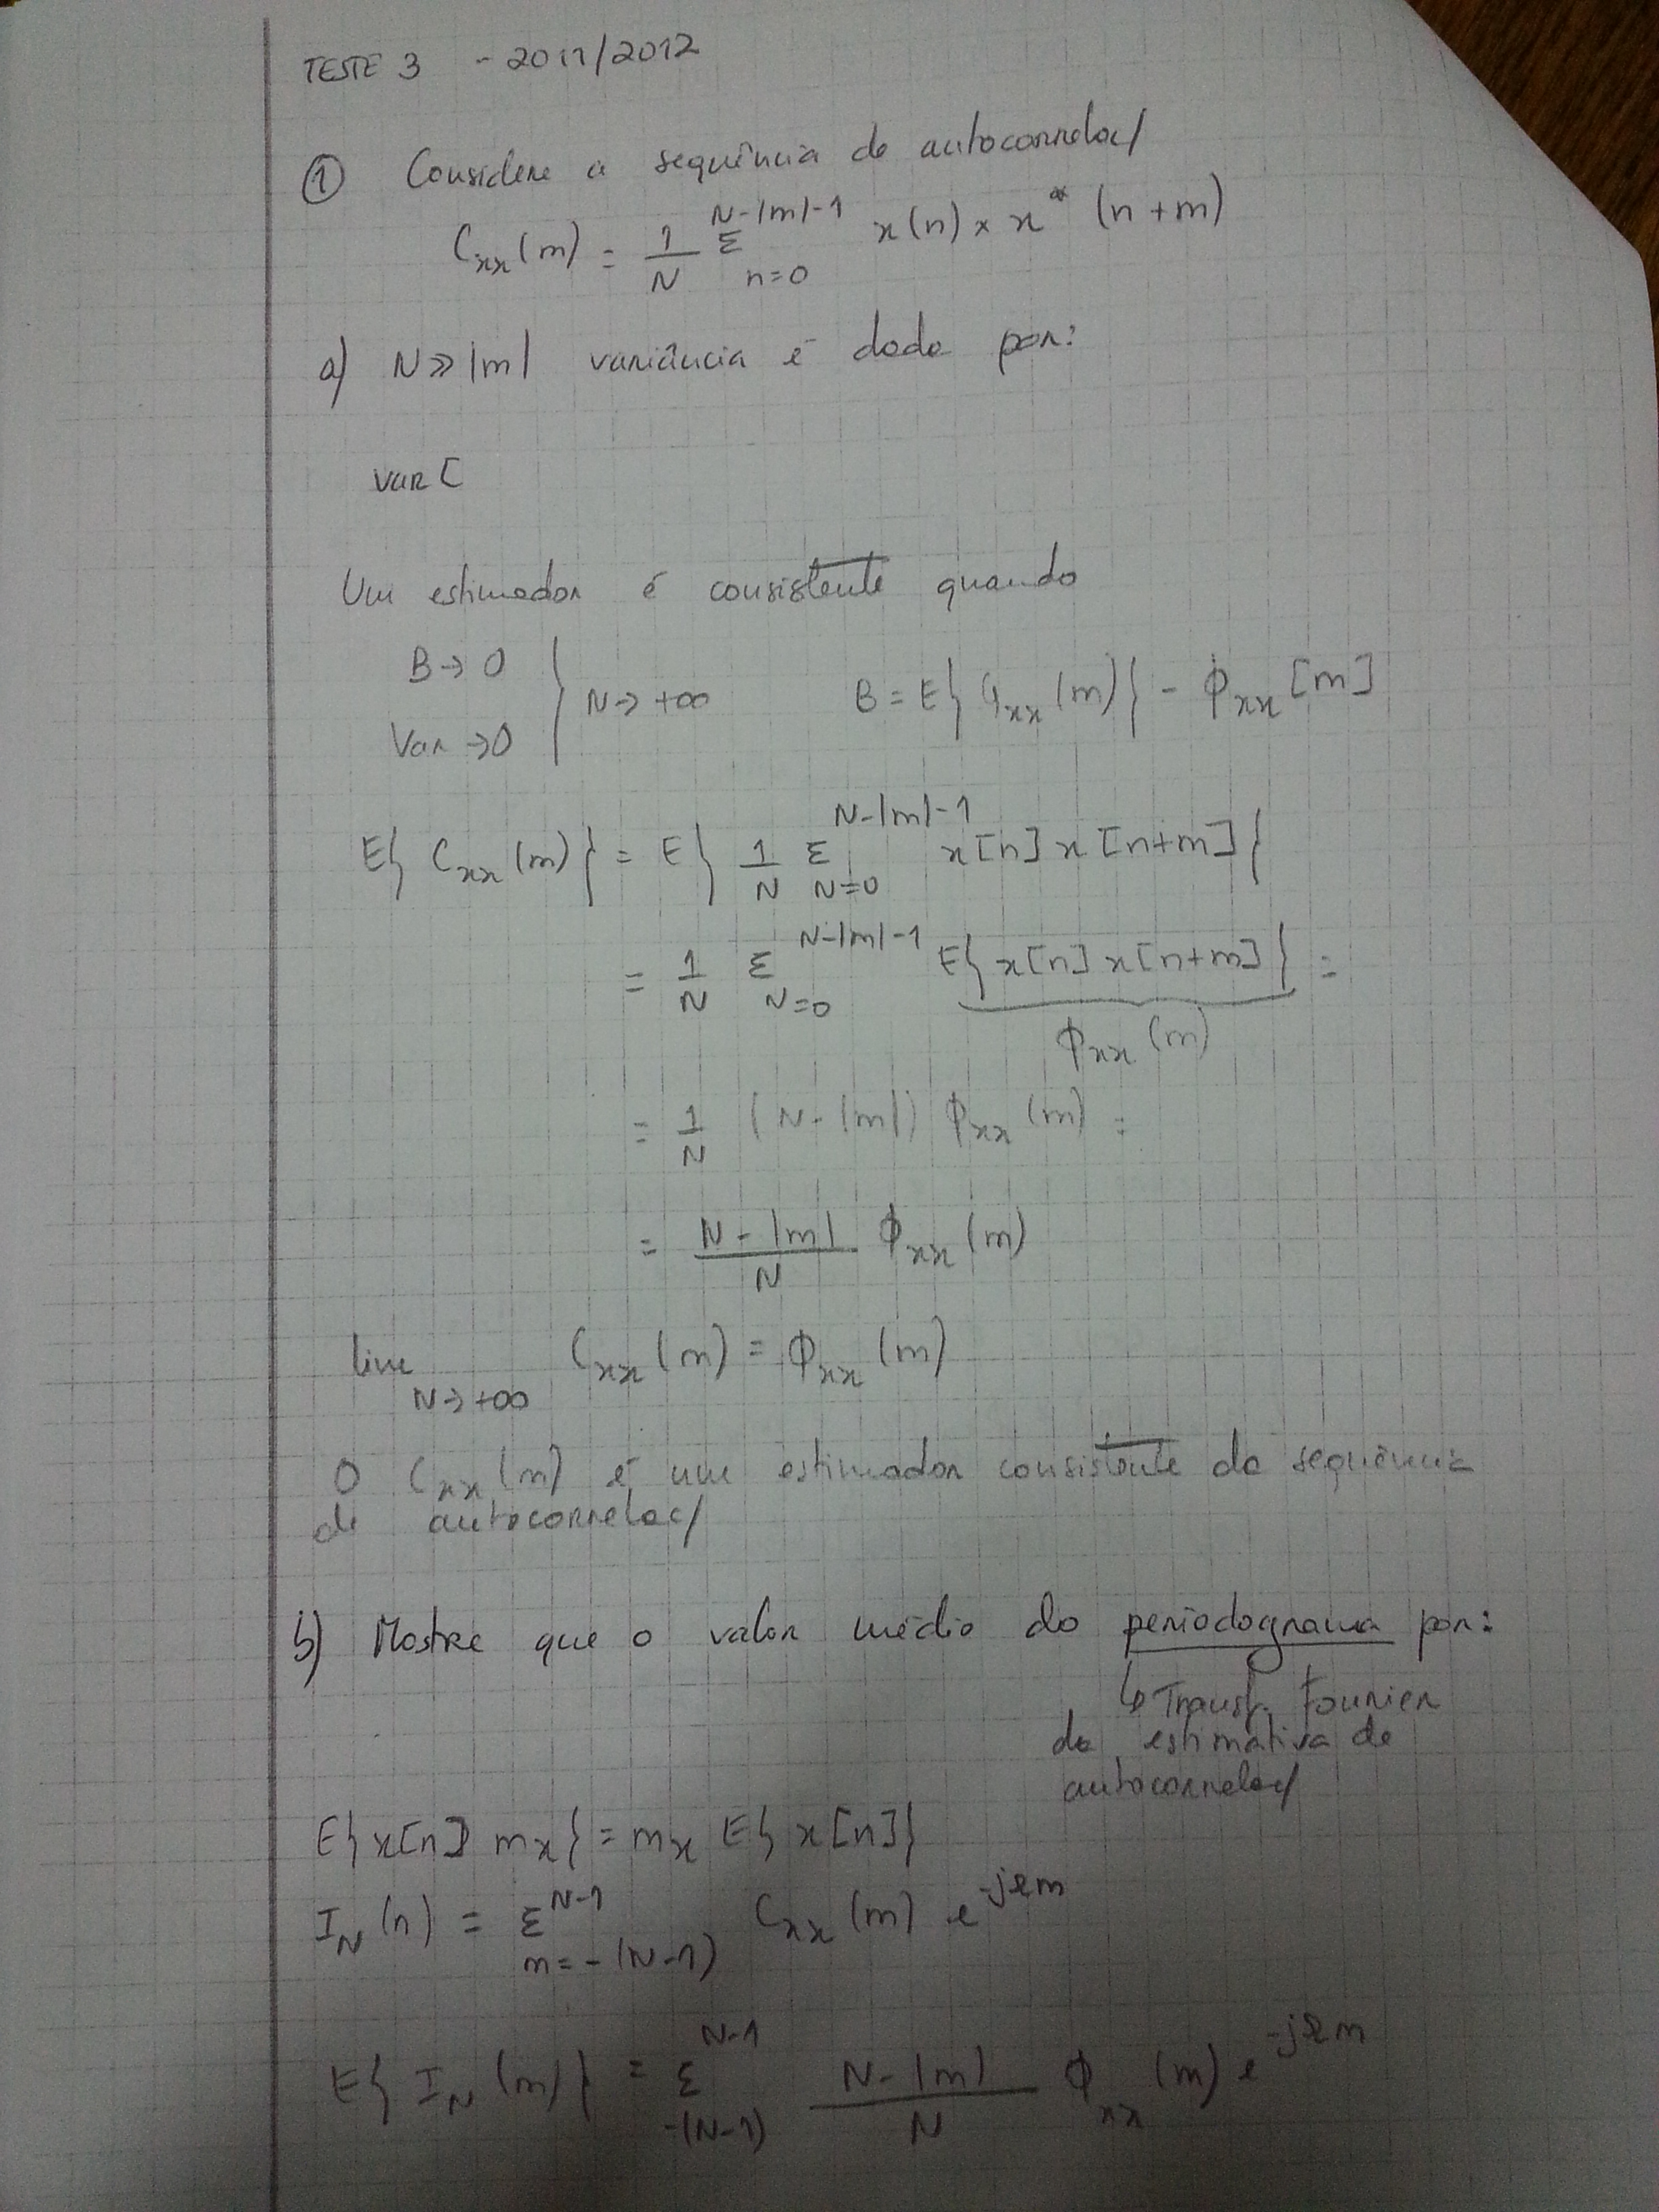 TESTE 3 - 2011/2012
① Considere a sequência de autocorrelaç/
Cxx(m) = 1/N Σ_{n=0}^{N-|m|-1} x(n) × x* (n+m)
a) N≫|m| variância é dada por:
var[
Um estimador é consistente quando
B→0 } N→+∞ B = E{Cxx(m)} - ϕxx[m]
Var→0
E{Cxx(m)} = E{ 1/N Σ_{N=0}^{N-|m|-1} x[n] x[n+m]}
= 1/N Σ_{N=0}^{N-|m|-1} E{x[n] x[n+m]} =
ϕxx(m)
= 1/N (N-|m|) ϕxx(m) =
= N-|m|/N ϕxx(m)
lim_{N→+∞} Cxx(m) = ϕxx(m)
O Cxx(m) é um estimador consistente da sequência
de autocorrelaç/
b) Mostre que o valor médio do periodograma por:
↳ Transf. Fourier
da estimativa de
autocorrelaç/
E{x[n] mx} = mx E{x[n]}
I_N(n) = Σ_{m=-(N-1)}^{N-1} Cxx(m) e^{-jΩm}
E{I_N(m)} = Σ_{-(N-1)}^{N-1} N-|m|/N ϕxx(m) e^{-jΩm}